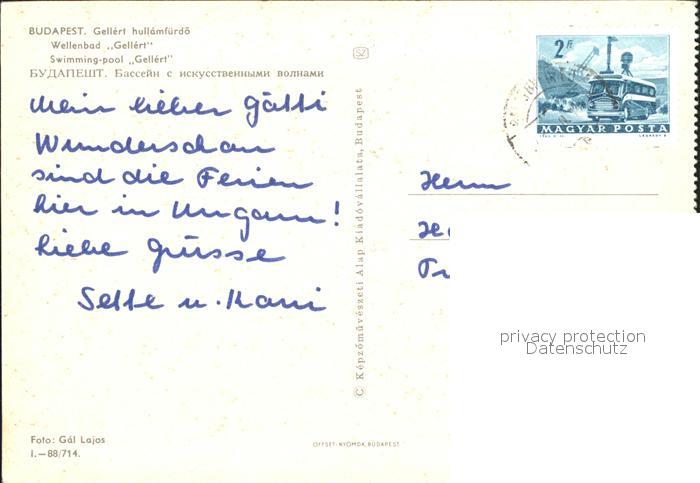 BUDAPEST. Gellért hullámfürdő
Wellenbad „Gellért"
Swimming-pool „Gellért"
БУДАПЕШТ. Бассейн с искусственными волнами
Mein lieber Götti
Wunderschön
sind die Ferien
hier in Ungarn!
Liebe Grüsse
u.
Foto: Gál Lajos
I.—88/714.
SZ
© Képzőművészeti Alap Kiadóvállalata, Budapest
OFFSET-NYOMDA, BUDAPEST
2 Ft
MAGYAR POSTA
Herrn
privacy protection
Datenschutz